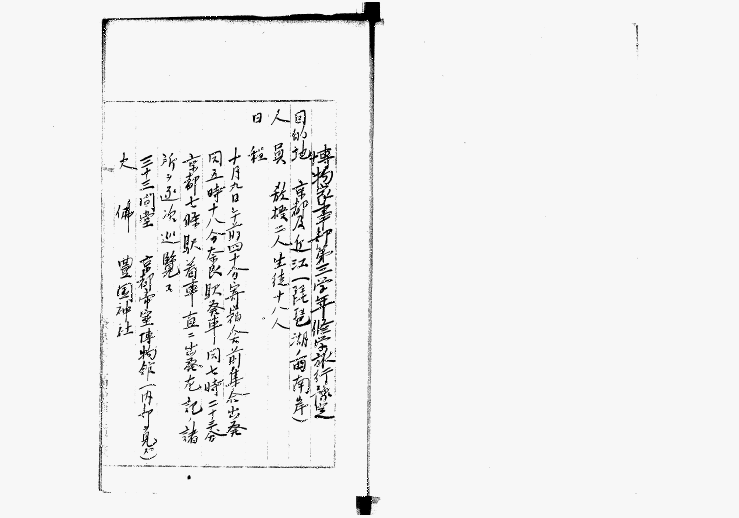 博物家事部第三学年修学旅行予定
目的地 京都及近江(琵琶湖ノ西南岸)
人員 教授二人生徒十八人
日程
十月九日午前四十分寄宿舎前集合出発
同五時十八分奈良駅発車同七時二十三分
京都七條駅着車直ニ出発左記ノ諸
所ヲ逐次巡覧ス
三十三間堂 京都帝室博物館(内部ヲ見ル)
大佛 豊国神社